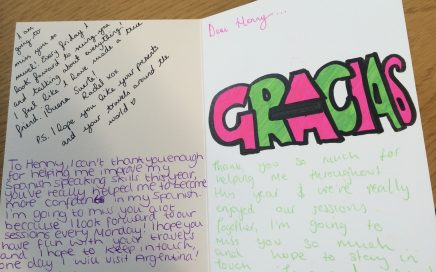 I am
going to
miss you so
much! Every friday I
look forward to ringing you
and talking about everything!
I feel like I have made a true
friend. ¡Buena Suerte!
Rachel xox
P.S. I hope you like your presents
and your travels around the
world ♡
To Henny, I can't thank you enough
for helping me improve my
Spanish speaking skills this year,
you've really helped me to become
more confident in my Spanish.
I'm going to miss you a lot
because I look forward to our
sessions every Monday! I hope you
have fun with your travels
and I hope to keep in touch,
one day I will visit Argentina!
Dear Henny...
GRACIAS
Thank you so much for
helping me throughout
this year & we're really
enjoyed our sessions
together, I'm going to
miss you so much
and hope to stay in
touch